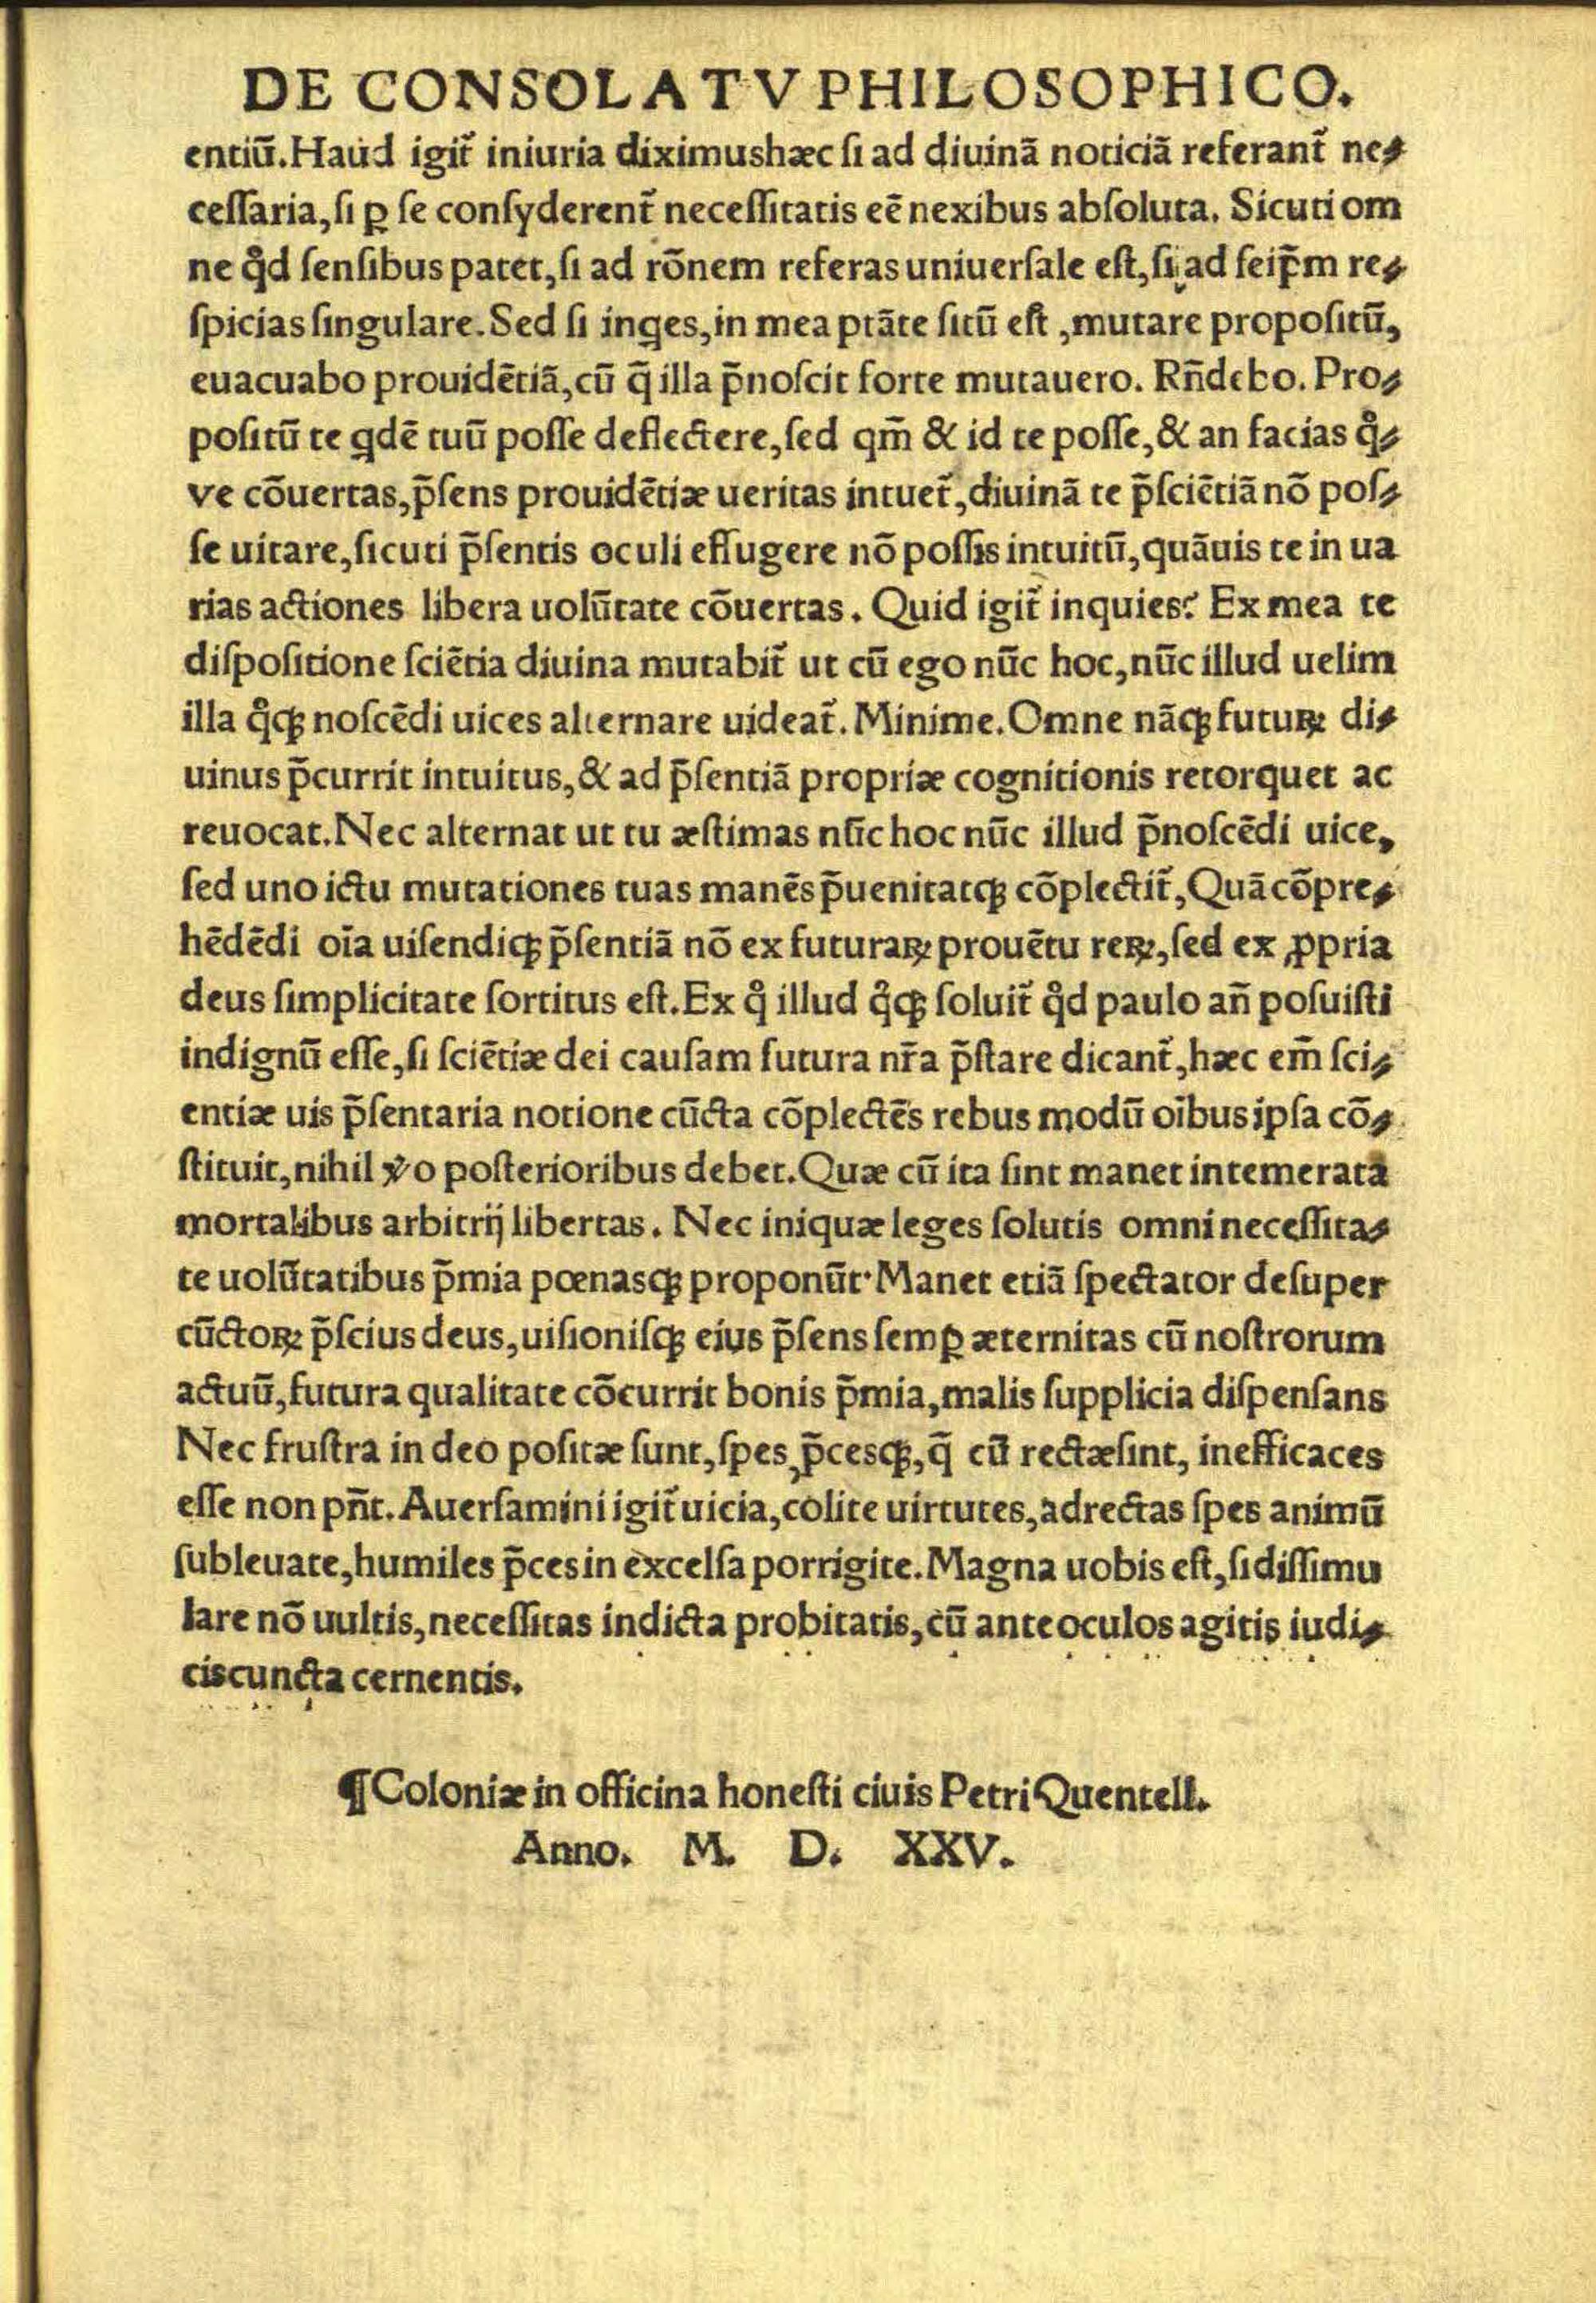 DE CONSOLATV PHILOSOPHICO.
entiū. Haud igit̃ iniuria diximus hæc ſi ad diuinā noticiā referant̃ ne⸗
ceſſaria, ſi ꝑ ſe conſyderent̃ neceſſitatis eē nexibus abſoluta. Sicuti om
ne qͦd ſenſibus patet, ſi ad rōnem referas uniuerſale eſt, ſi ad ſeip̄m re⸗
ſpicias ſingulare. Sed ſi inꝗes, in mea ptāte ſitū eſt, mutare propoſitū,
euacuabo prouidētiā, cū q̄ illa p̄noſcit forte mutauero. Rn̄debo. Pro⸗
poſitū te ꝗdē tuū poſſe deflectere, ſed qm̄ & id te poſſe, & an facias qͦ⸗
ve cōuertas, p̄ſens prouidētiæ ueritas intuet̃, diuinā te p̄ſciētiā nō poſ⸗
ſe uitare, ſicuti p̄ſentis oculi effugere nō poſſis intuitū, quāuis te in ua
rias actiones libera uolūtate cōuertas. Quid igit̃ inquies? Ex mea te
diſpoſitione ſciētia diuina mutabit̃ ut cū ego nūc hoc, nūc illud uelim
illa qͦqꝫ noſcēdi uices alternare uideat̃. Minime. Omne nāqꝫ futuꝝ di⸗
uinus p̄currit intuitus, & ad p̄ſentiā propriæ cognitionis retorquet ac
reuocat. Nec alternat ut tu æſtimas nūc hoc nūc illud p̄noſcēdi uice,
ſed uno ictu mutationes tuas manēs p̄uenit atqꝫ cōplectit̃, Quā cōpre⸗
hēdēdi oīa uiſendiqꝫ p̄ſentiā nō ex futuraꝝ prouētu reꝝ, ſed ex ꝓpria
deus ſimplicitate ſortitus eſt. Ex qͦ illud qͦqꝫ ſoluit̃ qͦd paulo an̄ poſuiſti
indignū eſſe, ſi ſciētiæ dei cauſam futura nr̄a p̄ſtare dicant̃, hæc em̄ ſci⸗
entiæ uis p̄ſentaria notione cūcta cōplectēs rebus modū oībus ipſa cō⸗
ſtituit, nihil v̓o poſterioribus debet. Quæ cū ita ſint manet intemerata
mortalibus arbitrij libertas. Nec iniquæ leges ſolutis omni neceſſita⸗
te uolūtatibus p̄mia pœnasqꝫ proponūt. Manet etiā ſpectator deſuper
cūctoꝝ p̄ſcius deus, uiſioniſqꝫ eius p̄ſens ſemꝑ æternitas cū noſtrorum
actuū, futura qualitate cōcurrit bonis p̄mia, malis ſupplicia diſpenſans
Nec fruſtra in deo poſitæ ſunt, ſpes, p̄cesqꝫ, q̄ cū rectæ ſint, inefficaces
eſſe non pn̄t. Averſamini igit̃ uicia, colite uirtutes, ad rectas ſpes animū
ſubleuate, humiles p̄ces in excelſa porrigite. Magna uobis eſt, ſi diſſimu
lare nō uultis, neceſſitas indicta probitatis, cū ante oculos agitis iudi⸗
cis cuncta cernentis.
¶ Coloniæ in officina honeſti ciuis Petri Quentell.
Anno. M. D. XXV.